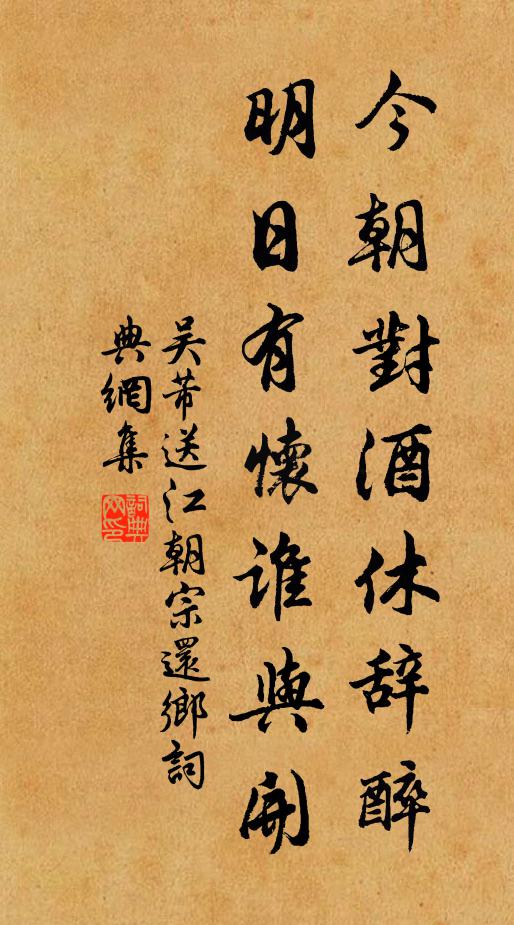 今朝對酒休辞醉
明日有懷誰與開
吴芾送江朝宗還鄉詞
典網集
詞典網印